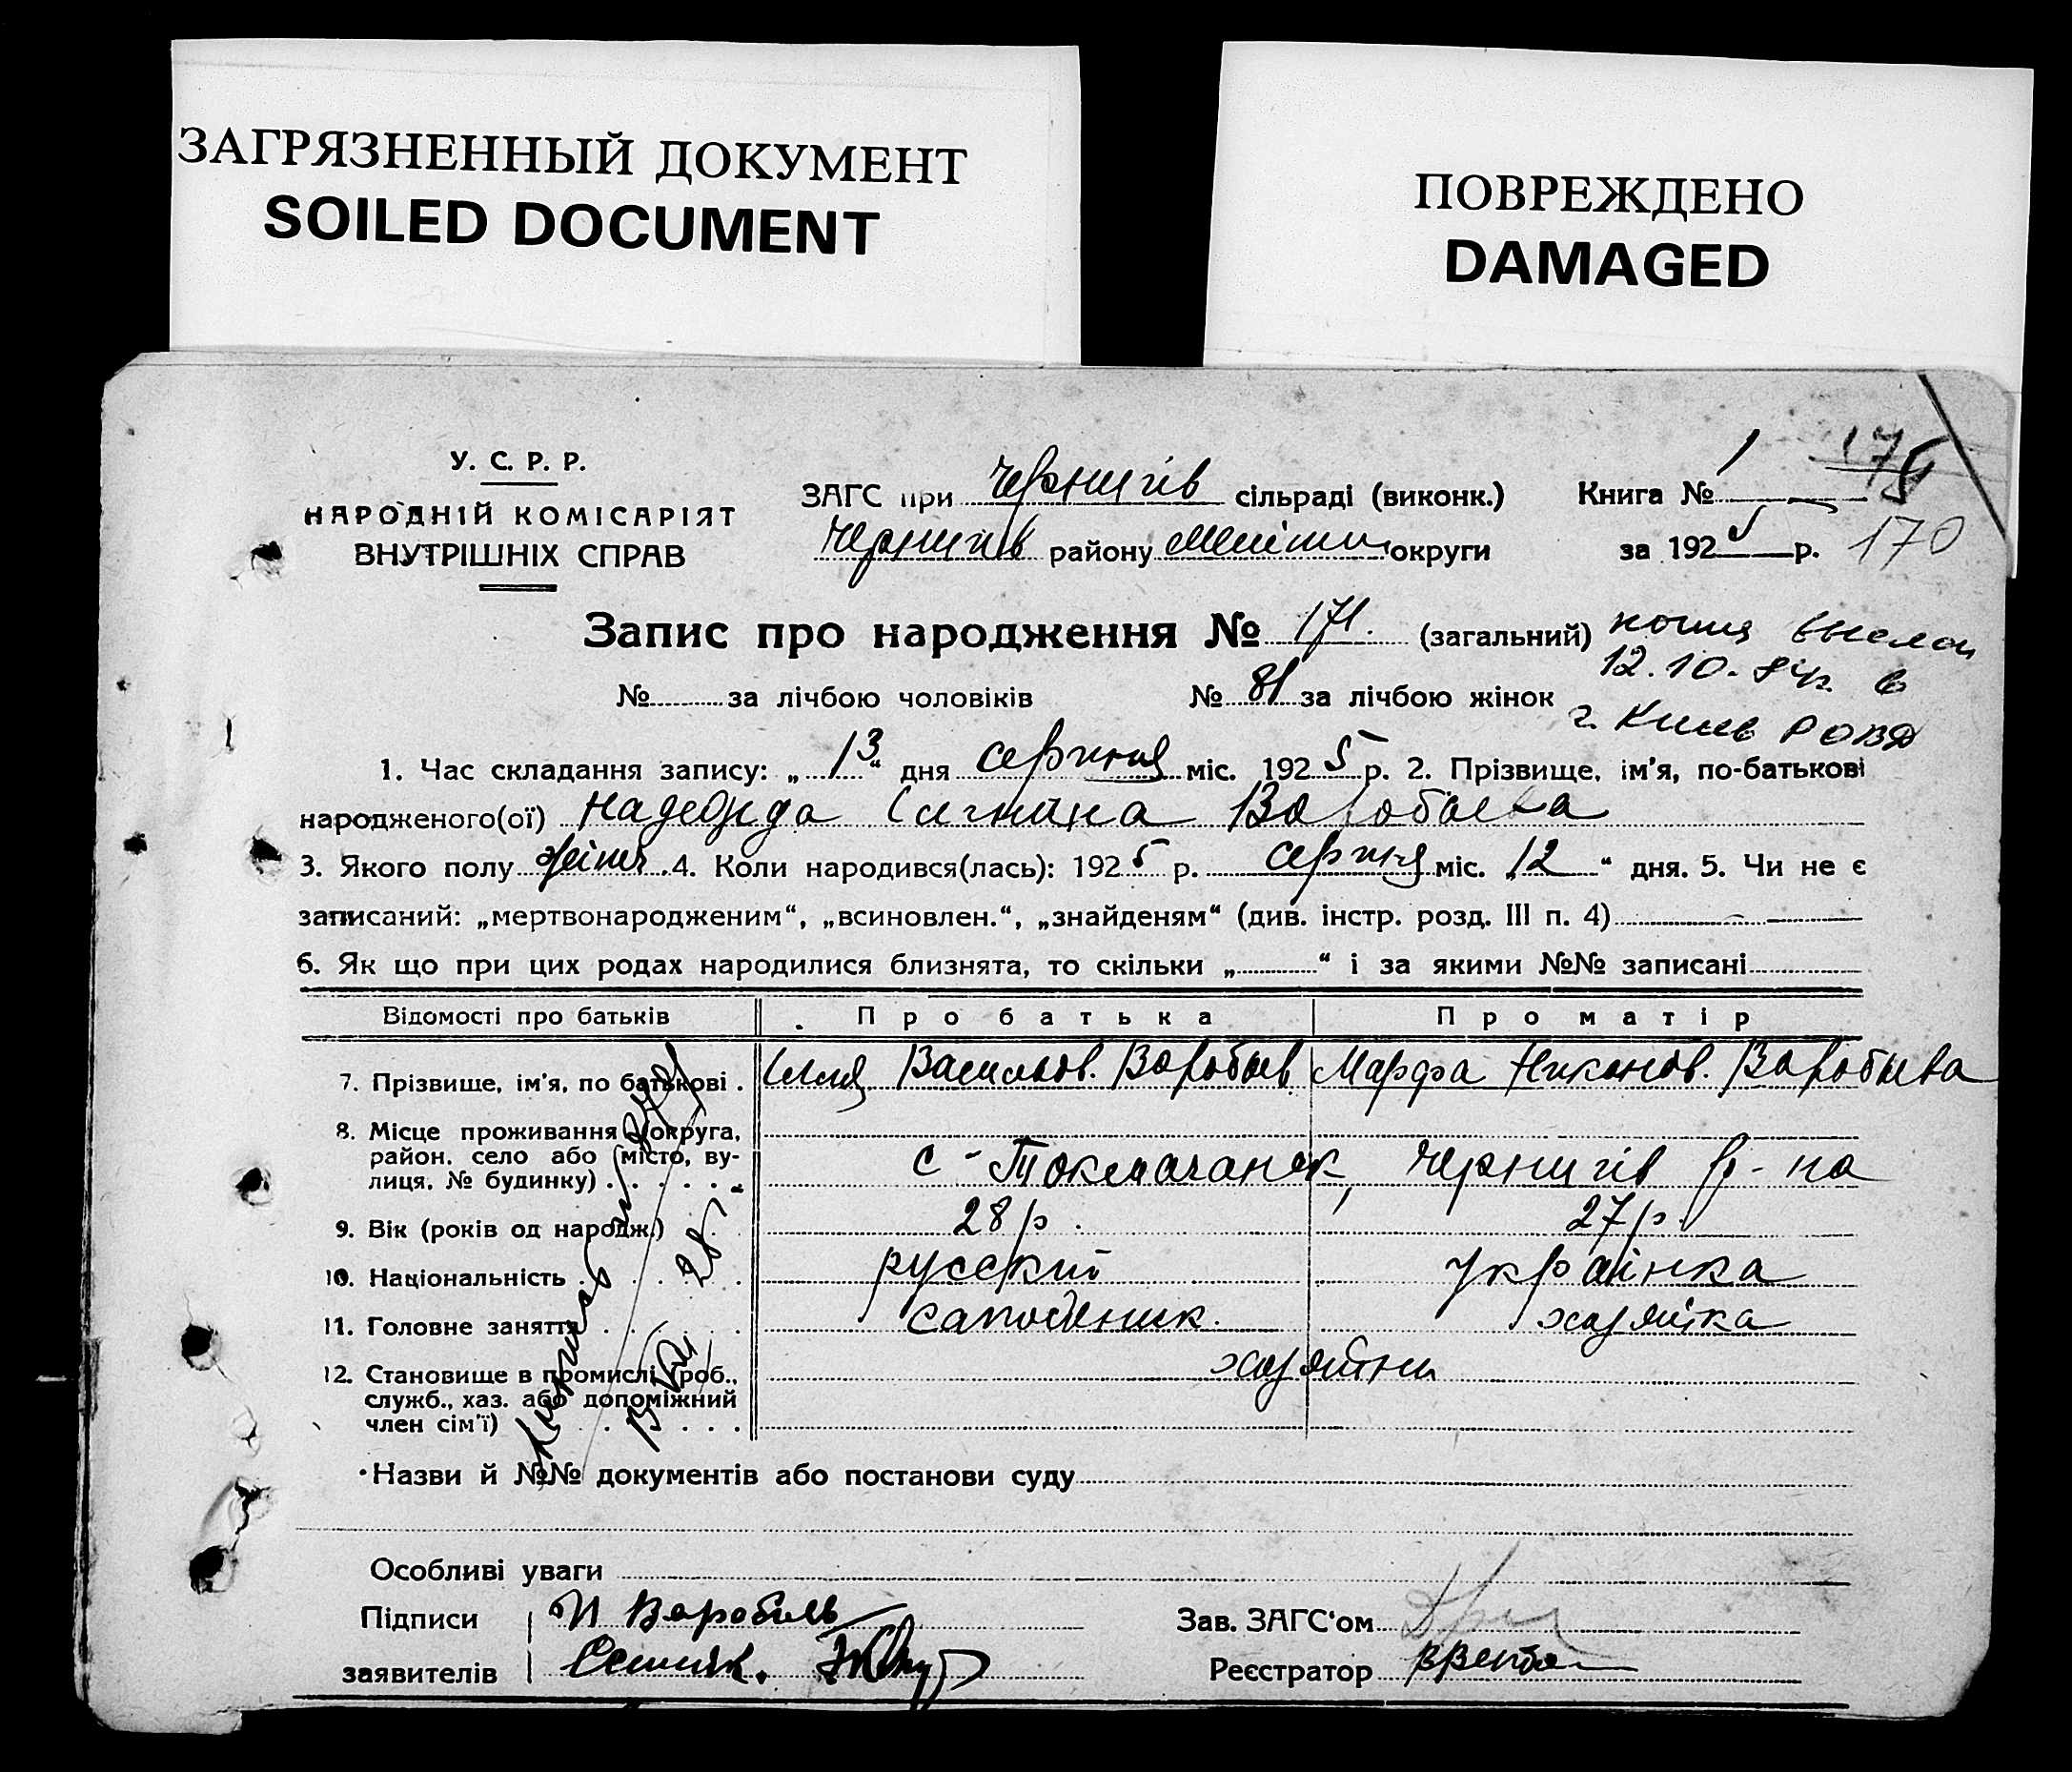 ЗАГРЯЗНЕННЫЙ ДОКУМЕНТ
SOILED DOCUMENT
ПОВРЕЖДЕНО
DAMAGED
У. С. Р. Р.
НАРОДНІЙ КОМІСАРІЯТ
ВНУТРІШНІХ СПРАВ
ЗАГС при Чернигів сільраді (виконк.)
Чернигів району округи
Книга № 1
за 1925 р. 170
Запис про народження № 171. (загальний)
№ за лічбою чоловіків № 81 за лічбою жінок
копия выслан
12.10. в
г. Киев РОВД
1. Час складання запису: „13“ дня серпня міс. 1925 р. 2. Прізвище, ім'я, по-батькові
народженого(ої) Надежда Воробьева
3. Якого полу жіноч. 4. Коли народився(лась): 1925 р. серпня міс. „12“ дня. 5. Чи не є
записаний: „мертвонародженим“, „всиновлен.“, „знайденям“ (див. інстр. розд. III п. 4)
6. Як що при цих родах народилися близнята, то скільки „ “ і за якими №№ записані
Відомості про батьків Про батька Про матір
7. Прізвище, ім'я, по батькові . Илля Васильов. Воробьев Марфа Никонов. Воробьева
8. Місце проживання (округа,
район, село або (місто, ву-
лиця, № будинку) . с-Токмачанск, Чернигів р-на
9. Вік (років од народж.) 28 р. 27 р.
10. Національність русский українка
11. Головне заняття хазяйка
12. Становище в промислі (роб.,
служб., хаз. або допоміжний
член сім'ї) хазяйни
Назви й №№ документів або постанови суду
Особливі уваги
Підписи И Воробьев
заявителів
Зав. ЗАГС'ом
Реєстратор